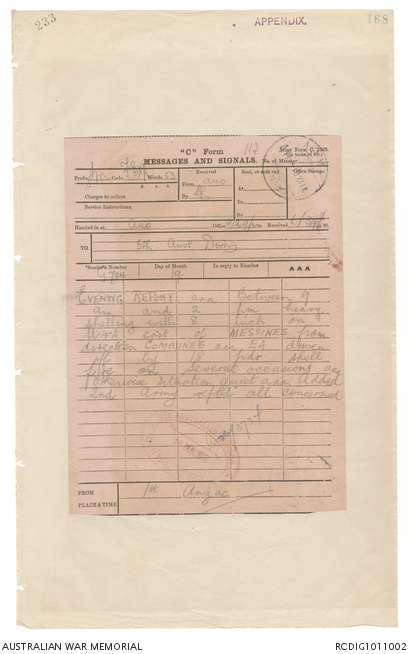 233
APPENDIX.
168
"C" Form
MESSAGES AND SIGNALS.
Army Form C. 2123.
No. of Message
112
Prefix
Code
Words 53
Received
From ANO
By
Sent, or sent out
At
To
By
Office Stamp.
Charges to collect
Service Instructions.
Handed in at ANO
Office
Received
TO 5th Aust Divn
*Sender's Number
Day of Month
In reply to Number
AAA
G 784
19
EVENING REPORT aaa Between 9
am and 2 pm heavy
shelling with 8 inch on
W and East of MESSINES from
direction COMINES aaa EA driven
off by 18 pdr shell
fire on several occasions aaa
otherwise situation quiet aaa Added
2nd Army reptd all concerned
FROM
PLACE & TIME
1st Anzac
AUSTRALIAN WAR MEMORIAL
RCDIG1011002